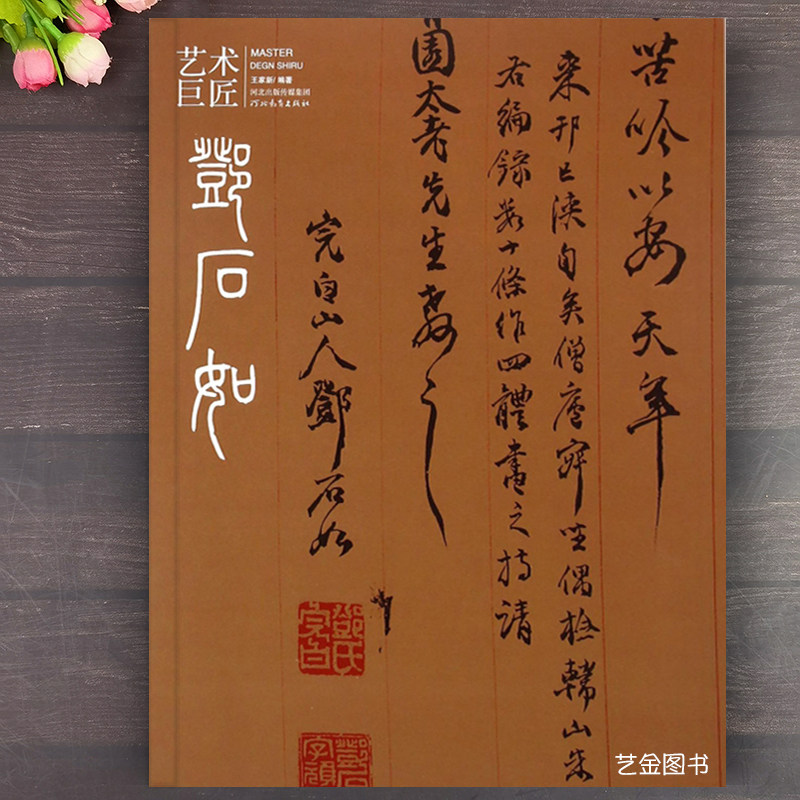 艺术
巨匠
MASTER
DEGN SHIRU
王家新/编著
河北出版传媒集团
河北教育出版社
鄧石如
苦吟以 天年
來邗已浹旬矣僧廬寂坐偶檢韓山朱
君編錄數十條作四體書之持請
園太老先生教之
完白山人鄧石如
鄧氏完白
艺金图书